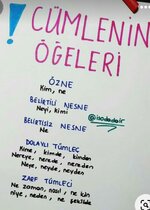 ! CÜMLENİN
ÖGELERİ
ÖZNE
Kim, ne
BELİRTİLİ NESNE
Neyi, kimi
BELİRTİSİZ NESNE
Ne
DOLAYLI TÜMLEÇ
Kime, kimde, kimden
Nereye, nerede, nereden
Neye, neyde, neyden
ZARF TÜMLECİ
Ne zaman, nasıl, ne için
niye, neden, ne şekilde